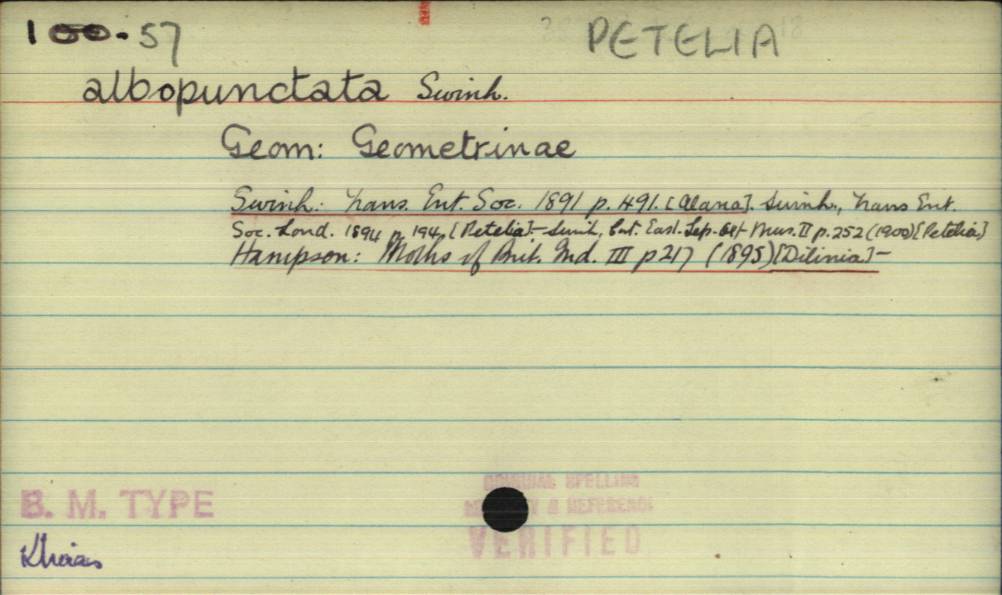 100.57 PETELIA
albopunctata Swinh.
Geom: Geometrinae
Swinh: Trans. Ent. Soc. 1891 p. 491. [Alana]. Swinh., Trans Ent.
Soc. Lond. 1894 p. 194, [Petelia] - Swinh, Cat. East. Lep. Het Mus. II p. 252 (1900) [Petelia]
Hampson: Moths of Brit. Ind. III p 217 (1895) [Dilinia] -
B. M. TYPE
ORIGINAL SPELLING
& REFERENCE
VERIFIED
Khasias